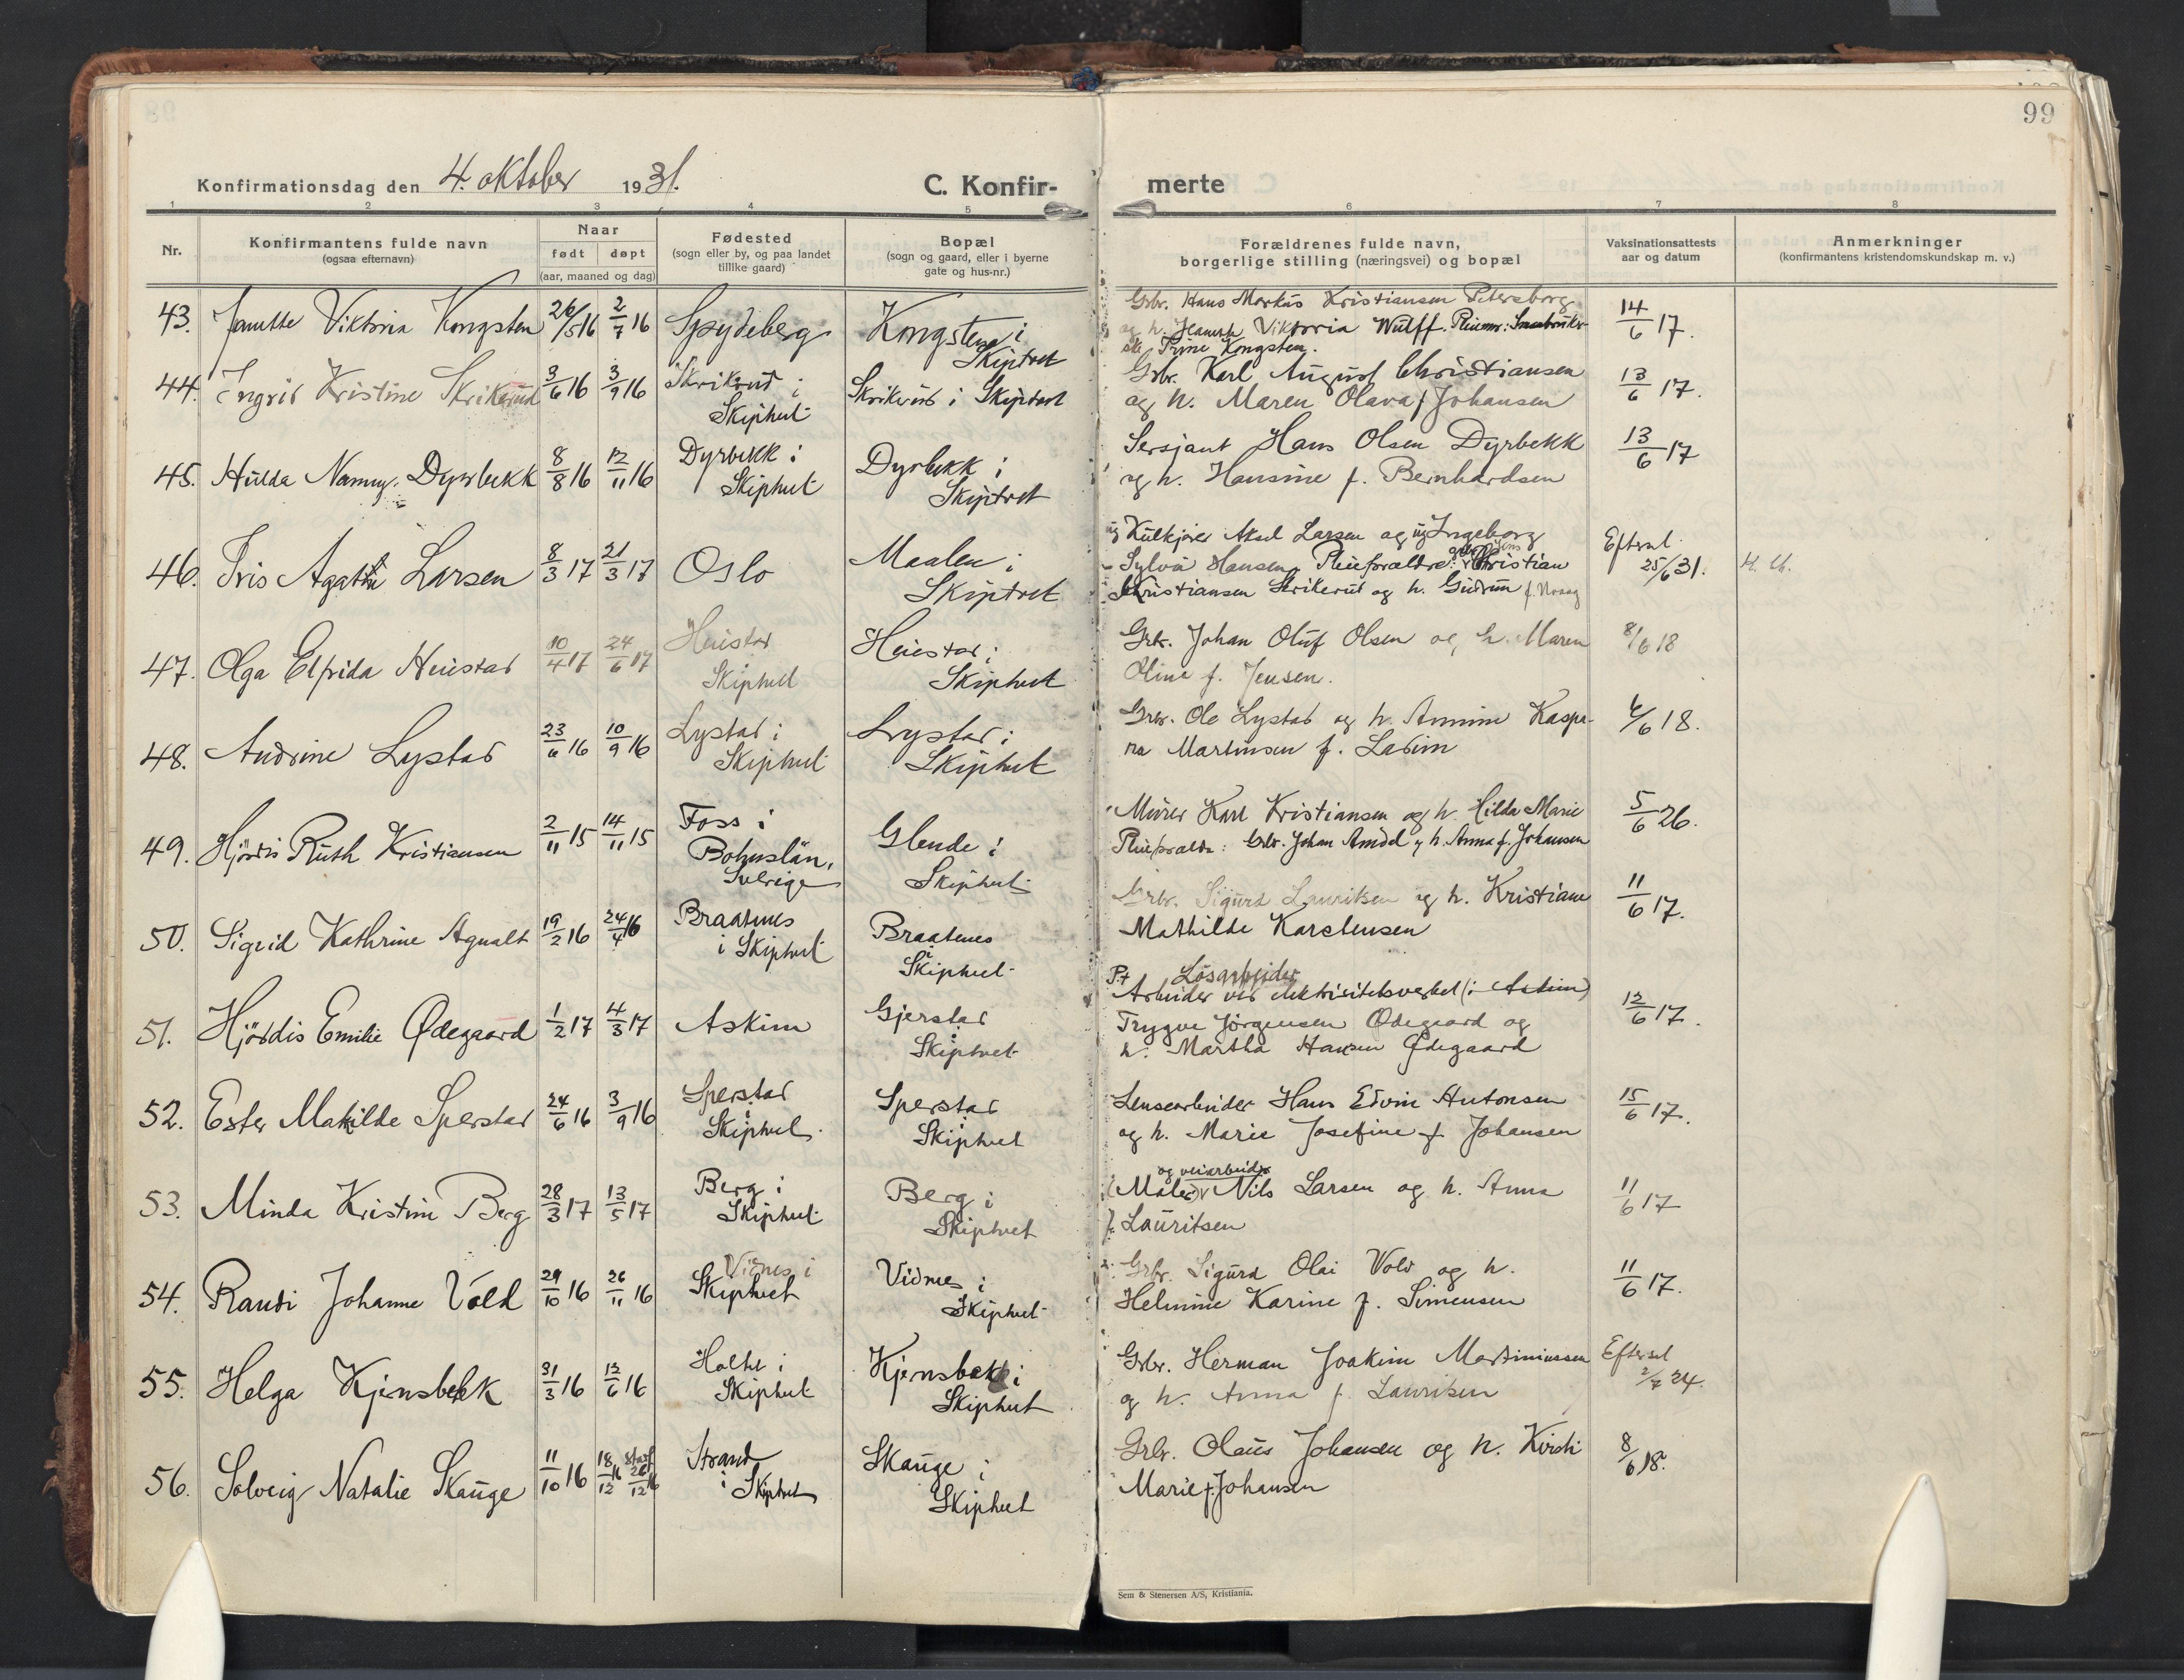 99
Konfirmationsdag den 4. oktober 1931.
C. Konfir-
merte
1 2 3 4 5 6 7 8
Nr.
Konfirmantens fulde navn
(ogsaa efternavn)
Naar
født døpt
(aar, maaned og dag)
Fødested
(sogn eller by, og paa landet
tillike gaard)
Bopæl
(sogn og gaard, eller i byerne
gate og hus-nr.)
Forældrenes fulde navn,
borgerlige stilling (næringsvei) og bopæl
Vaksinationsattests
aar og datum
Anmerkninger
(konfirmantens kristendomskundskap m. v.)
43. Viktoria Kongsten 26/5 16 2/7 16 Spydeberg Kongsten i
Skiptvet
Grbr. Hans Markus Kristiansen Petersborg
og h. Viktoria Wulff. Pleiemor:
Trine Kongsten.
14/6 17.
44. Ingrid Kristine Skrikerud 3/6 16 3/9 16 Skrikerud i
Skiptvet
Skrikerud i Skiptvet
Grbr. Karl August Christiansen
og h. Maren Olava f. Johansen
13/6 17.
45. Hulda Nanny Dyrbekk 8/8 16 12/11 16 Dyrbekk i
Skiptvet
Dyrbekk i
Skiptvet
Sersjant Hans Olsen Dyrbekk
og h. Hansine f. Bernhardsen
13/6 17
46. Iris Agathe Larsen 8/3 17 21/3 17 Oslo Maalen i
Skiptvet
ug Kulkjører Aksel Larsen og ug Ingeborg
Sylvia Hansen. Pleieforældre: Christian
Kristiansen Skrikerud og h. Gudrun f.
Eftersel
25/6 31.
47. Olga Elfrida Heiestad 10/4 17 24/6 17 Heiestad
Skiptvet
Heiestad i
Skiptvet
Grbr. Johan Oluf Olsen og h. Maren
Oline f. Jensen.
8/6 18
48. Andrine Lystad 23/6 16 10/9 16 Lystad i
Skiptvet
Lystad i
Skiptvet
Grbr. Ole Lystad og h. Annine Kaspa-
ra Martinsen f. Ladim
6/6 18.
49. Hjørdis Ruth Kristiansen 2/11 15 14/11 15 Foss i
Bohuslän,
Sverige
Glende i
Skiptvet
Murer Karl Kristiansen og h. Hilda Marie
Pleieforældre: Grbr. Johan Amdal og h. Anna f. Johansen
5/6 26.
50. Sigrid Kathrine Agnalt 19/2 16 24/4 16 Braatenes
i Skiptvet
Braatenes
i
Skiptvet
Grbr. Sigurd Lauritsen og h. Kristiane
Mathilde Karstensen
11/6 17.
51. Hjørdis Emilie Ødegaard 1/2 17 4/3 17 Askim Gjerstad
i
Skiptvet
P.t Løsarbeider
Arbeider ved elektrisitetsverket (i Askim)
Trygve Jørgensen Ødegaard og
h. Martha Hansen Ødegaard
12/6 17.
52. Ester Matilde Sperstad 24/6 16 3/9 16 Sperstad
i
Skiptvet
Sperstad
i
Skiptvet
Lensearbeider Hans Edvin Antonsen
og h. Marie Josefine f. Johansen
15/6 17.
53. Minda Kristine Berg 28/3 17 13/5 17 Berg i
Skiptvet
Berg i
Skiptvet
og veiarbeider
(Maler) Nils Larsen og h. Anna
f. Lauritsen
11/6 17
54. Randi Johanne Vold 29/10 16 26/11 16 Vidnes i
Skiptvet
Vidnes i
Skiptvet
Grbr. Sigurd Olai Vold og h.
Helmine Karine f. Simensen
11/6 17.
55. Helga Kjensbekk 31/3 16 12/6 16 Holthe i
Skiptvet
Kjensbekk i
Skiptvet
Grbr. Herman Joakim Martiniussen
og h. Anna f. Lauritsen
Eftersel
2/7 24.
56. Solveig Natalie Skauge 11/10 16 18/12 16 stadf. 26/12 16 Strand
i Skiptvet
Skauge i
Skiptvet
Grbr. Olaus Johansen og h. Kirsti
Marie f. Johansen
8/6 18.
Sem & Stenersen A/S, Kristiania.